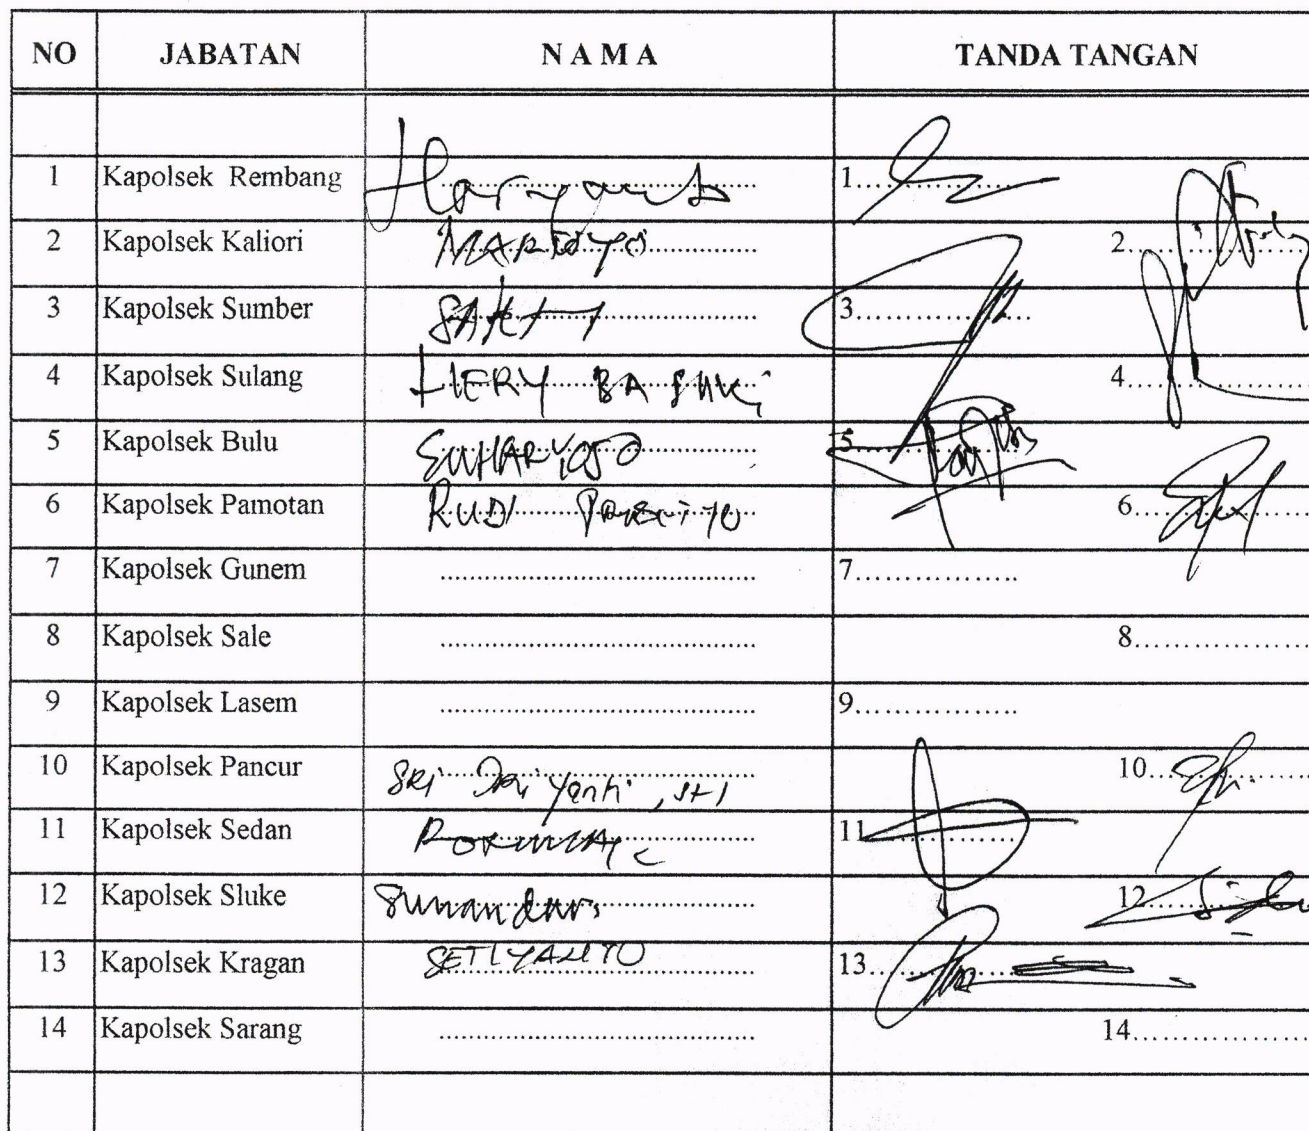 NO JABATAN N A M A TANDA TANGAN
1 Kapolsek Rembang Haryanto 1..................
2 Kapolsek Kaliori 2..................
3 Kapolsek Sumber SAKTI 3..................
4 Kapolsek Sulang HERY BASUKI 4..................
5 Kapolsek Bulu SUHARYOSO 5..................
6 Kapolsek Pamotan RUDI 6..................
7 Kapolsek Gunem .................. 7..................
8 Kapolsek Sale .................. 8..................
9 Kapolsek Lasem .................. 9..................
10 Kapolsek Pancur SRI Dri Yanti, SH 10..................
11 Kapolsek Sedan 11..................
12 Kapolsek Sluke Sunandar 12..................
13 Kapolsek Kragan SETIYANTO 13..................
14 Kapolsek Sarang .................. 14..................